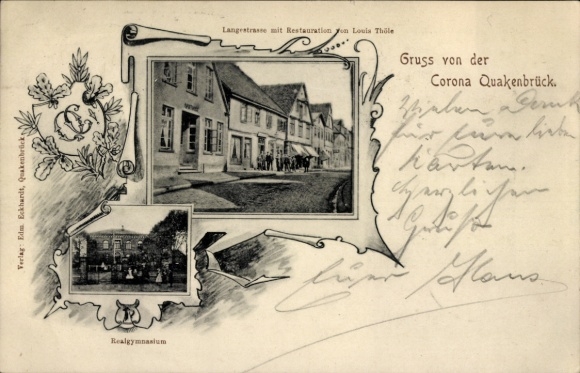 Langestrasse mit Restauration von Louis Thöle
Gruss von der
Corona Quakenbrück.
Vielen Dank
für Eure lieben
Karten.
Herzlichen
Gruß
Euer Hans.
Verlag: Edm. Eckhardt, Quakenbrück
Realgymnasium